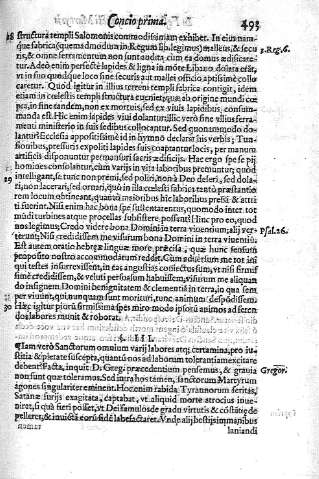 Concio prima. 493
structura templi Salomonis commodissimam exhibet. In eius nam-
que fabrica (quemadmodum in Regum lib. legimus) malleus, & secu 3. Reg. 6.
ris, & omne ferramentum non sunt audita, cum ea domus ædificare-
tur. Adeò enim perfectè lapides & ligna in mōte Libano dolata erāt,
vt in suo quodque loco sine securis aut mallei officio aptissimè collo
caretur. Quod igitur in illius terreni templi fabrica contigit, idem
etiam in cœlestis templi structura euenit: quæ ab origine mundi cœ
pta, in fine tandem, non ex mortuis, sed ex viuis lapidibus, consum-
manda est. Hic enim lapides viui dolantur: illic verò sine vllius ferra-
menti ministerio in suis sedibus collocantur. Sed quonammodo do-
lantur? Ecclesia appositissimè id in hymno declarat his verbis; Tun-
sionibus, pressuris expoliti lapides suis coaptantur locis, per manum
artificis disponuntur permansuri sacris ædificijs. Hac ergo spe se pij
homines consolantur, cum varijs in vita laboribus premuntur; quòd
29 intelligant, se tunc non premi, sed poliri, non à Deo deseri, sed dola-
ri, non lacerari, sed ornari, quò in illa cœlesti fabrica tentò præstantio
rem locum obtineant, quantò maioribus hic laboribus pressi & attri
ti fuerint. Nisi enim hac bona spe sustentarentur, quomodo inter tot
mūdi turbines atque procellas subsistere possent? Hinc pro eo, quod
nos legimus; Credo videre bona Domini in terra viuentium, alij ver- Psal. 26.
terunt; Nisi credidissem me visurum bona Domini in terra viuentiū.
Est autem oratio hebreæ linguæ more præcisa, quæ hunc sensum
proposito nostro accommodatum reddit. Cum aduersum me tot ini
qui testes insurrexissent, in eas angustias coniectus sum, vt nisi firmis
simè credidissem, & veluti persuasum habuissem, visurum me aliquan
do insignem Domini benignitatem & clementiā in terra, in qua sem
per viuunt, qui nunquam sunt morituri, tunc animum despōdissem.
30 Hæc igitur piorū firmissima spes miro modo ipsorū animos ad feren
dos labores munit & roborat.
§. III.
¶ Iam verò Sanctorum omnium varij labores atq; certamina, pro iu-
stitia & pietate suscepta, quantū nos ad laborum tolerantiam excitare
debent? Facta, inquit D. Greg. præcedentium pensemus, & grauia Gregor.
non sunt quæ toleramus. Sed intra hos tamen, sanctorum Martyrum
agones singulariter eminent. Hoc enim rabida Tyrannorum feritas,
Satanæ furijs exagitata, captabat, vt aliquid morte atrocius inue-
niret, si quà fieri posset, vt Dei famulos de gradu virtutis & cōstātiæ de
pelleret, & inuictā eorū fidē labefactaret. Vnde alij bestijs immanibus
laniandi